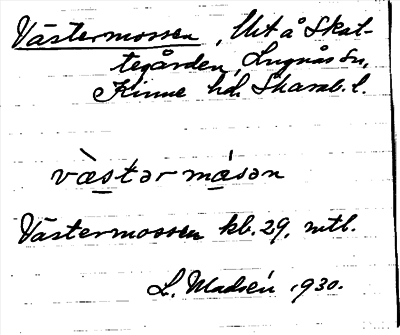 Västermossen, Ut å Skat-
tegården, Lugnås sn,
Kinne hd. Skarab. l.
væ̀stər mǻsən
Västermossen kb. 29. mtl.
L. Madsén 1930.